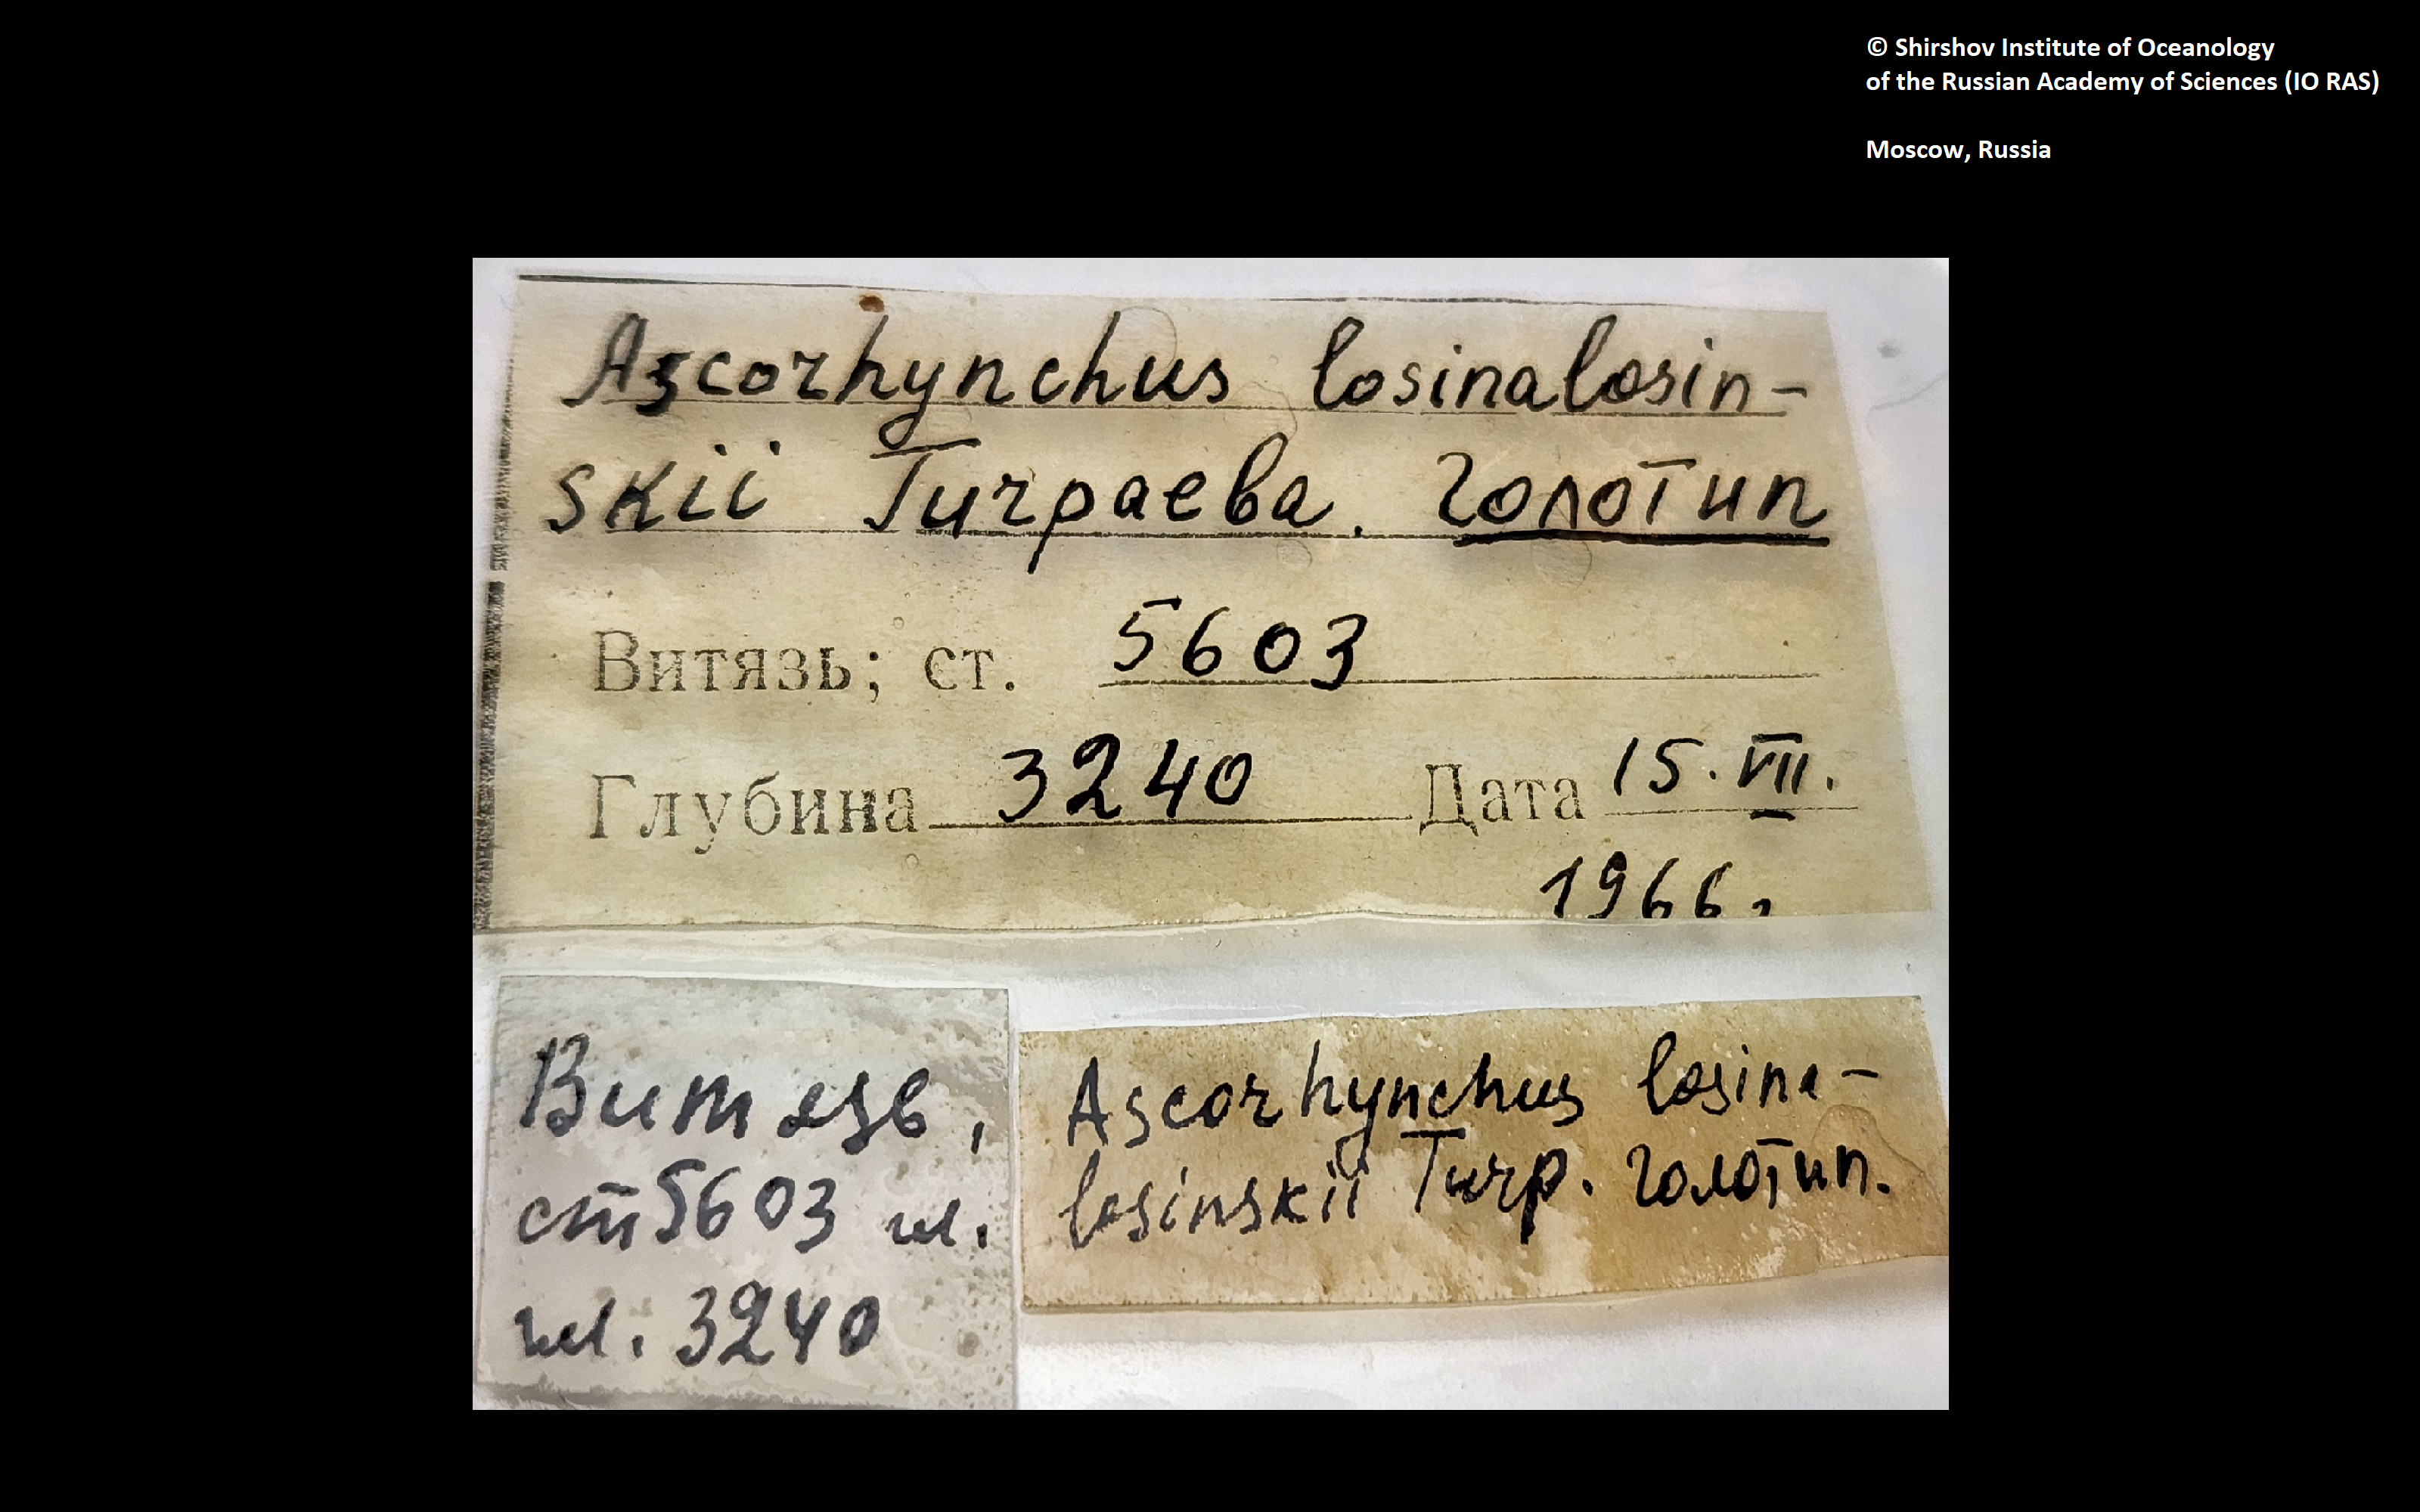 © Shirshov Institute of Oceanology
of the Russian Academy of Sciences (IO RAS)
Moscow, Russia
Ascorhynchus losinalosin-
skii Turpaeва. голотип
Витязь; ст. 5603
Глубина 3240 Дата 15.VII.
1966.
Витязь,
ст 5603
3240
Ascorhynchus losina-
losinskii Turp. голотип.